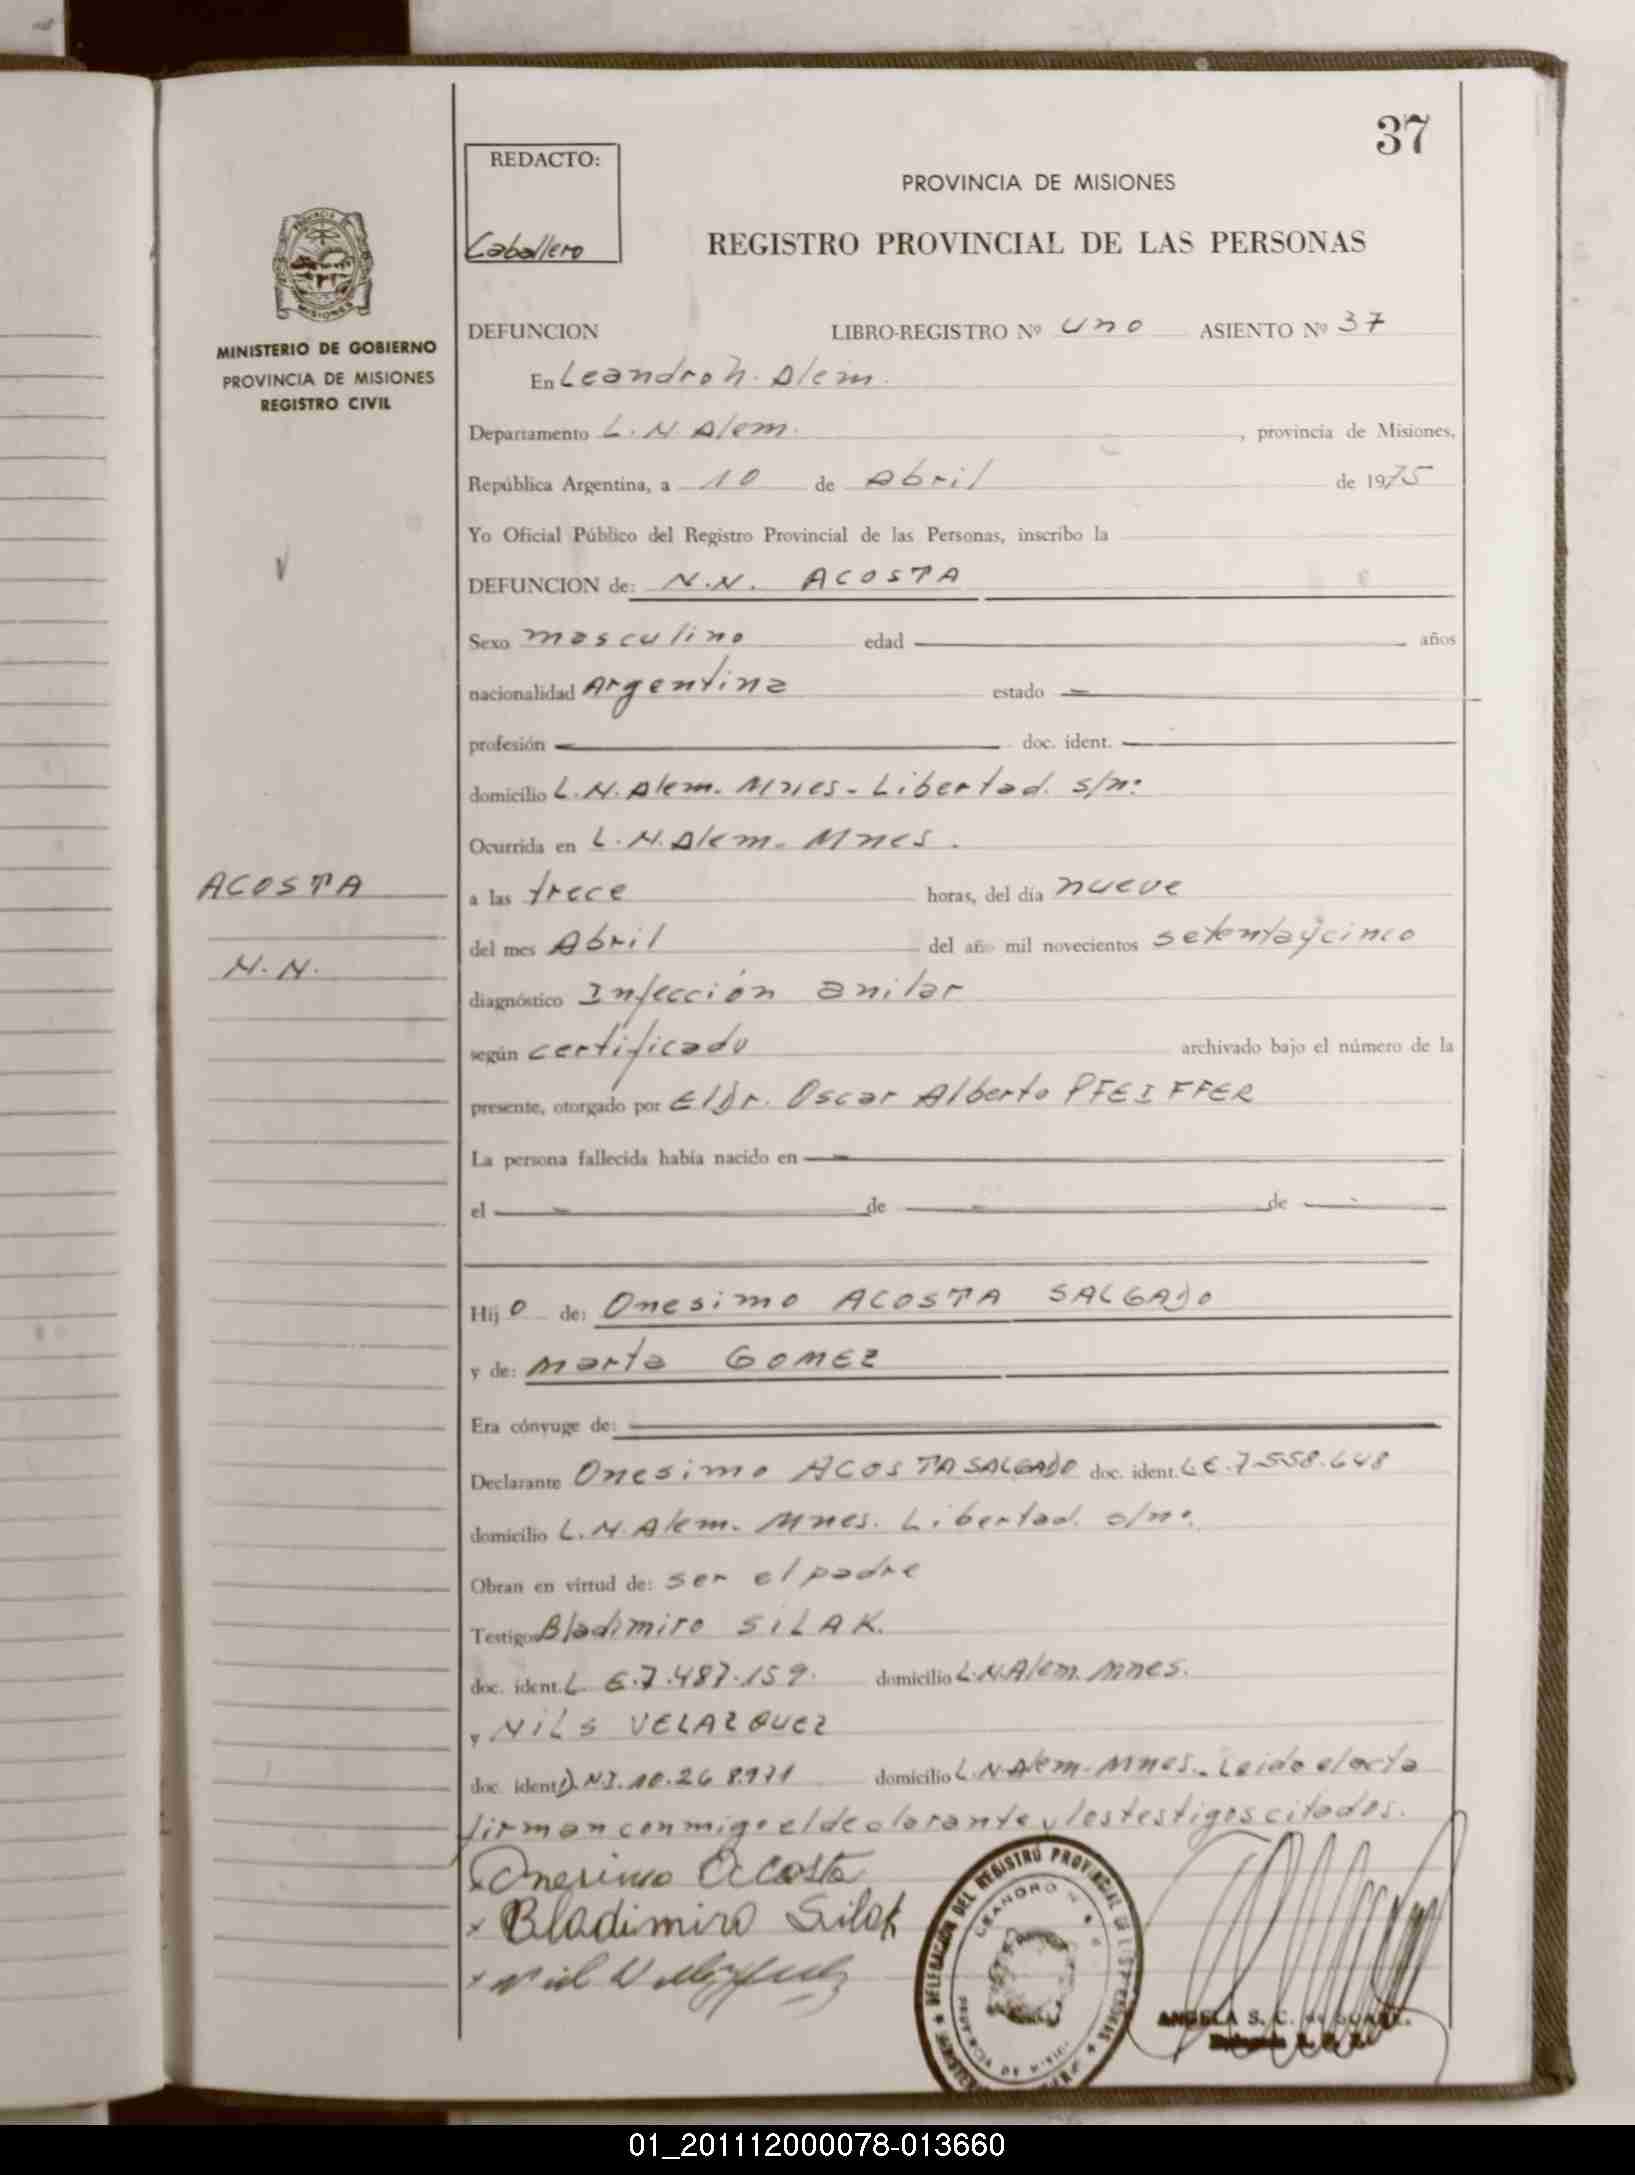 37
REDACTO:
Caballero
PROVINCIA DE MISIONES
REGISTRO PROVINCIAL DE LAS PERSONAS
MINISTERIO DE GOBIERNO
PROVINCIA DE MISIONES
REGISTRO CIVIL
DEFUNCION LIBRO-REGISTRO Nº uno ASIENTO Nº 37
En Leandro N. Alem.
Departamento L. N. Alem. , provincia de Misiones,
República Argentina, a 10 de Abril de 1975
Yo Oficial Público del Registro Provincial de las Personas, inscribo la
DEFUNCION de: N.N. ACOSTA
Sexo masculino edad años
nacionalidad Argentina estado
profesión doc. ident.
domicilio L.N. Alem. Mnes - Libertad. s/nº
Ocurrida en L.N. Alem. Mnes.
ACOSTA
N.N.
a las trece horas, del día nueve
del mes Abril del año mil novecientos setenta y cinco
diagnóstico Infección anilar
según certificado archivado bajo el número de la
presente, otorgado por El Dr. Oscar Alberto PFEIFFER
La persona fallecida había nacido en
el de de
Hijo de: Onesimo ACOSTA SALGADO
y de: Marta GOMEZ
Era cónyuge de:
Declarante Onesimo ACOSTA SALGADO doc. ident. L E. 7.558.648
domicilio L.N. Alem. Mnes. Libertad. s/nº.
Obran en virtud de: ser el padre
Testigos Bladimiro SILAK.
doc. ident. L E. 7.487.159. domicilio L.N. Alem. Mnes.
y NILS VELAZQUEZ
doc. ident. D.N.I. 10.268.971 domicilio L.N. Alem. Mnes. Leido el acta
firman conmigo el declarante y los testigos citados.
Onesimo Acosta
x Bladimiro Silak
DELEGACION DEL REGISTRO PROVINCIAL DE LAS PERSONAS
LEANDRO N.
ANGELA S. C. de
01_201112000078-013660